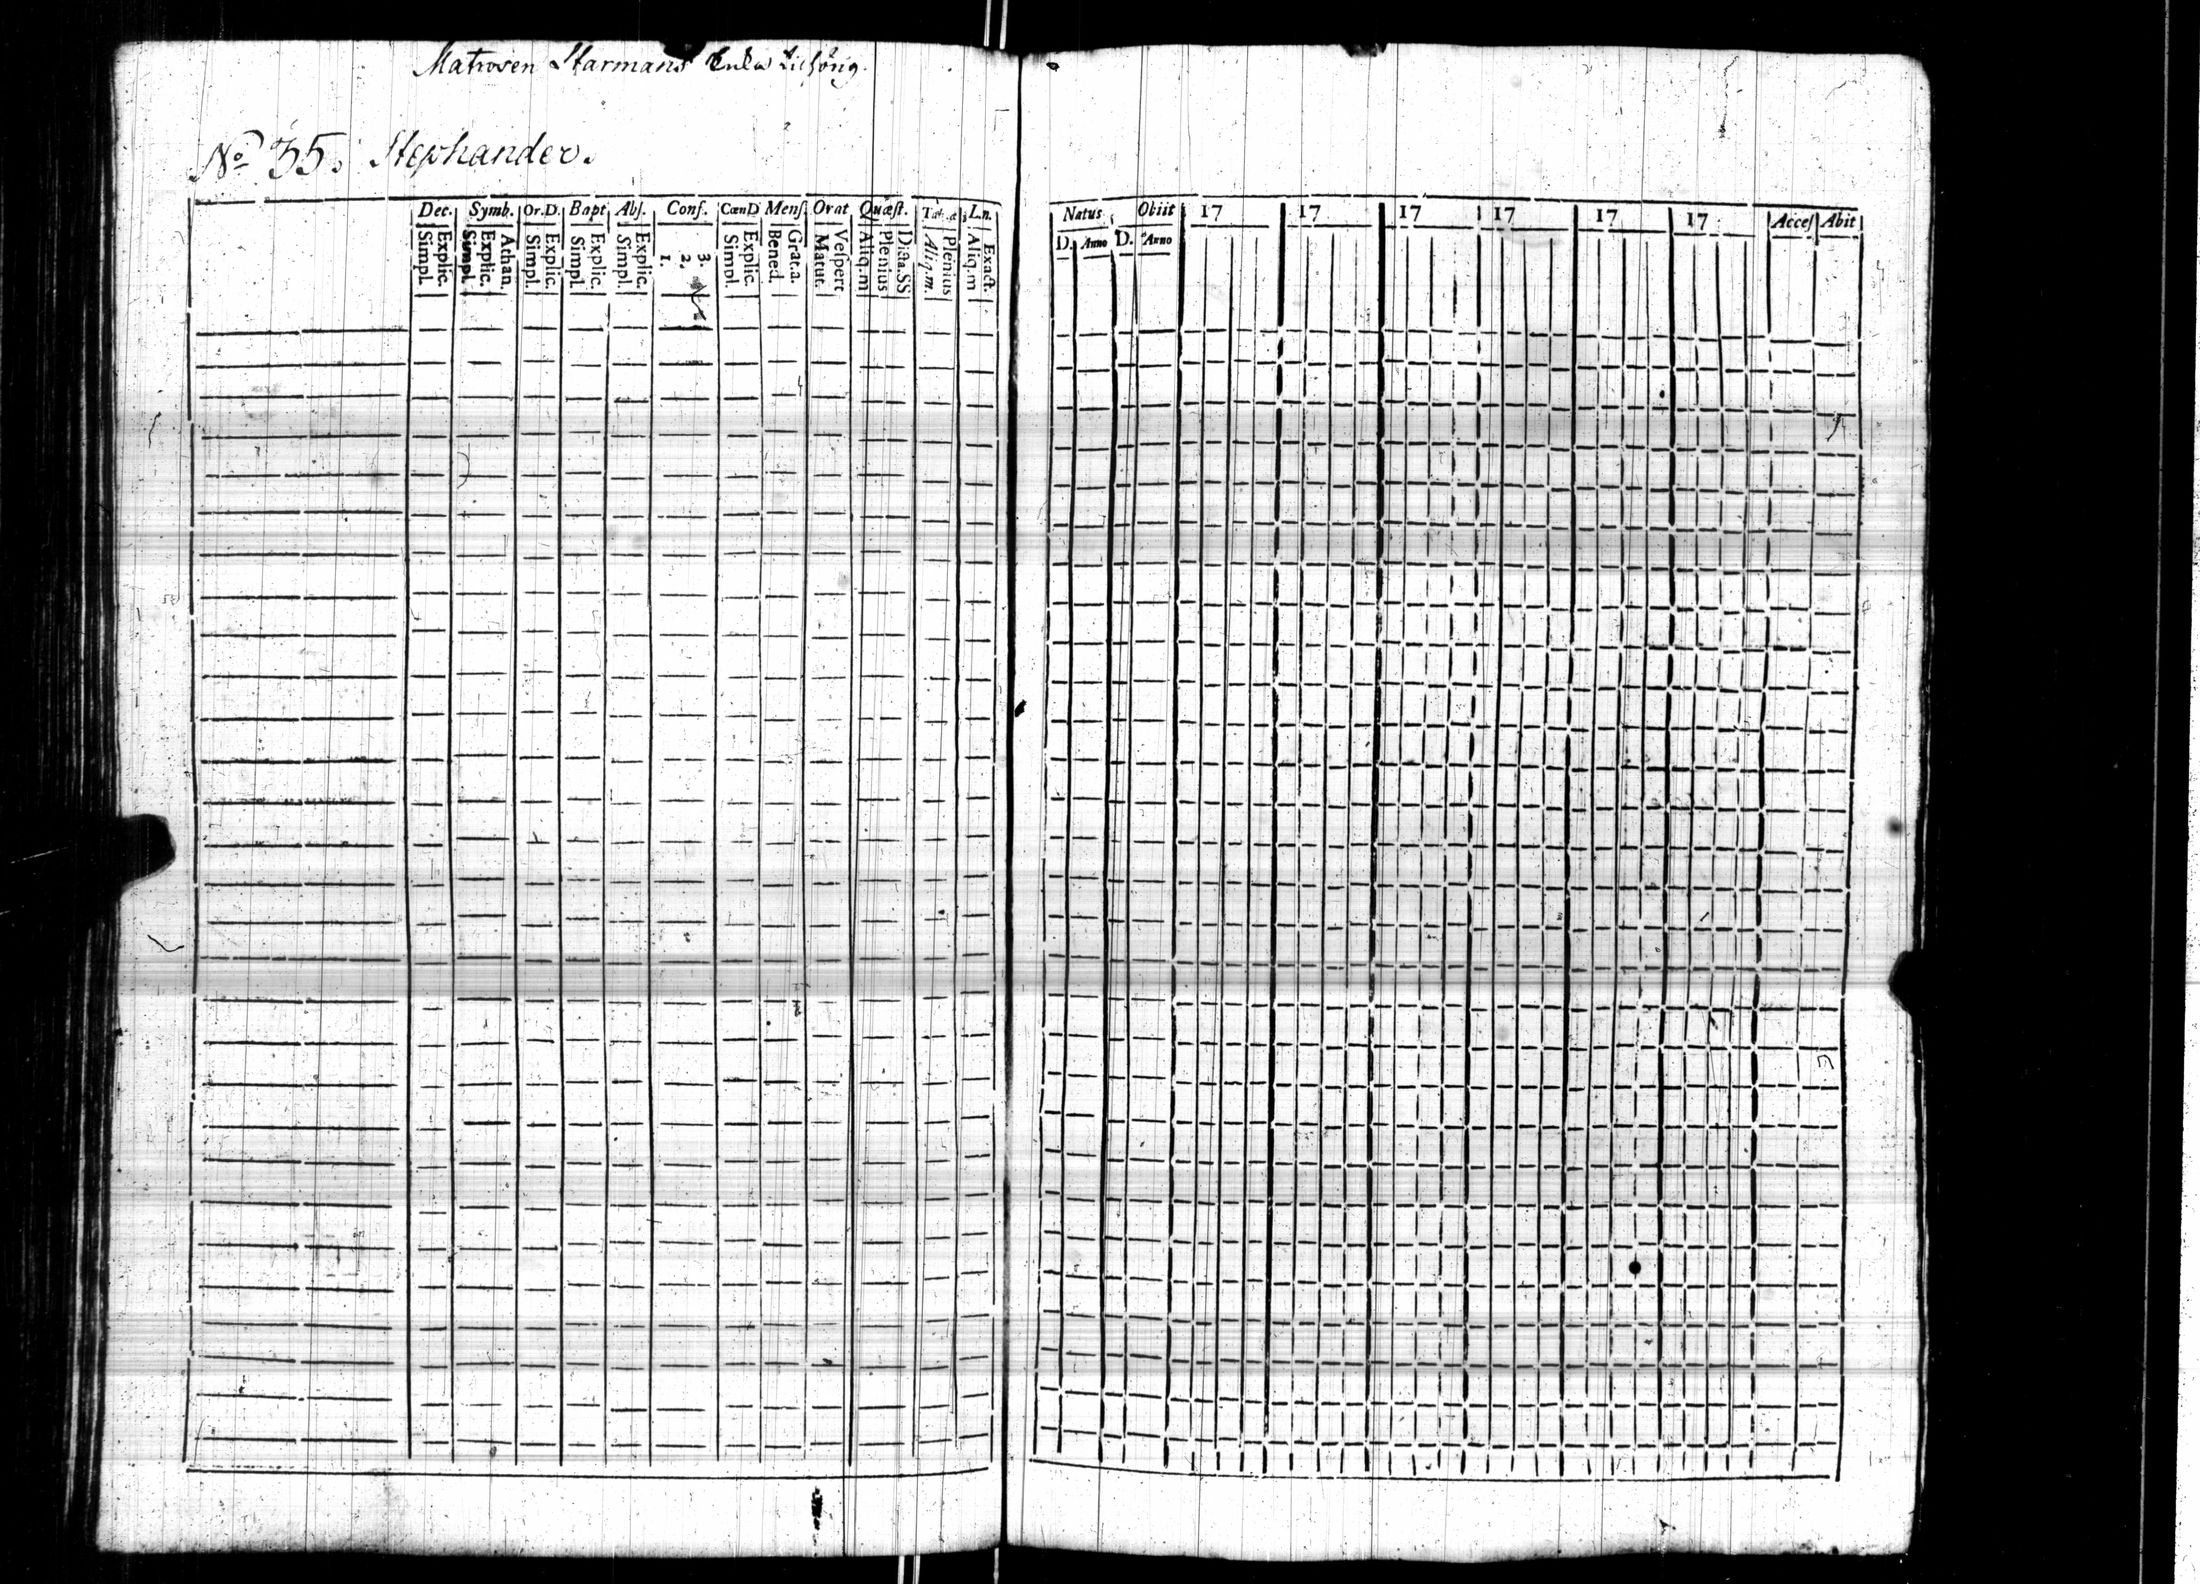 Matrosen Starmans Enka tilhörig.
No 35. Stephander.
Dec. Symb. Or.D. Bapt. Abs. Conf. CœnD Mens. Orat Quæst. L.n.
Simpl. Explic. Simpl. Explic. Athan. Simpl. Explic. Simpl. Explic. Simpl. Explic. 1. 2. 3. Simpl. Explic. Bened. Grat.a. Matut. Vespert Aliq.m Plenius Aliq.m. Plenius Aliq.m Exact.
Natus Obiit 17 17 17 17 17 17 Acces Abit
D. Anno D. Anno